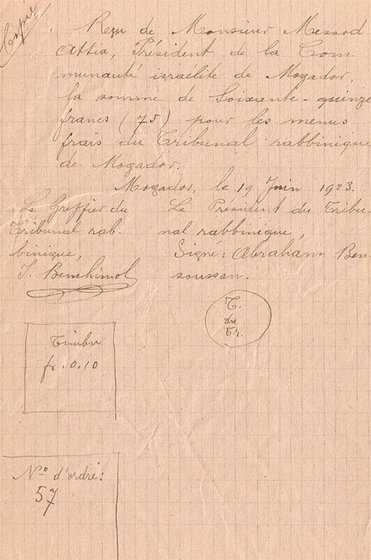 Copie
Reçu de Monsieur Messod
Attia, Président de la Com
munauté israélite de Mogador,
la somme de Soixante-quinze
francs (75) pour les menus
frais du Tribunal rabbinique
de Mogador.
Mogador, le 19 Juin 1923.
Le Greffier du
Tribunal rab.
binique,
S. Bemhimol
Le Président du Tribu
nal rabbinique,
Signé: Abraham Ben
soussan.
T.
du
Tr.
Timbre
fr. 0.10
No d'ordre:
57